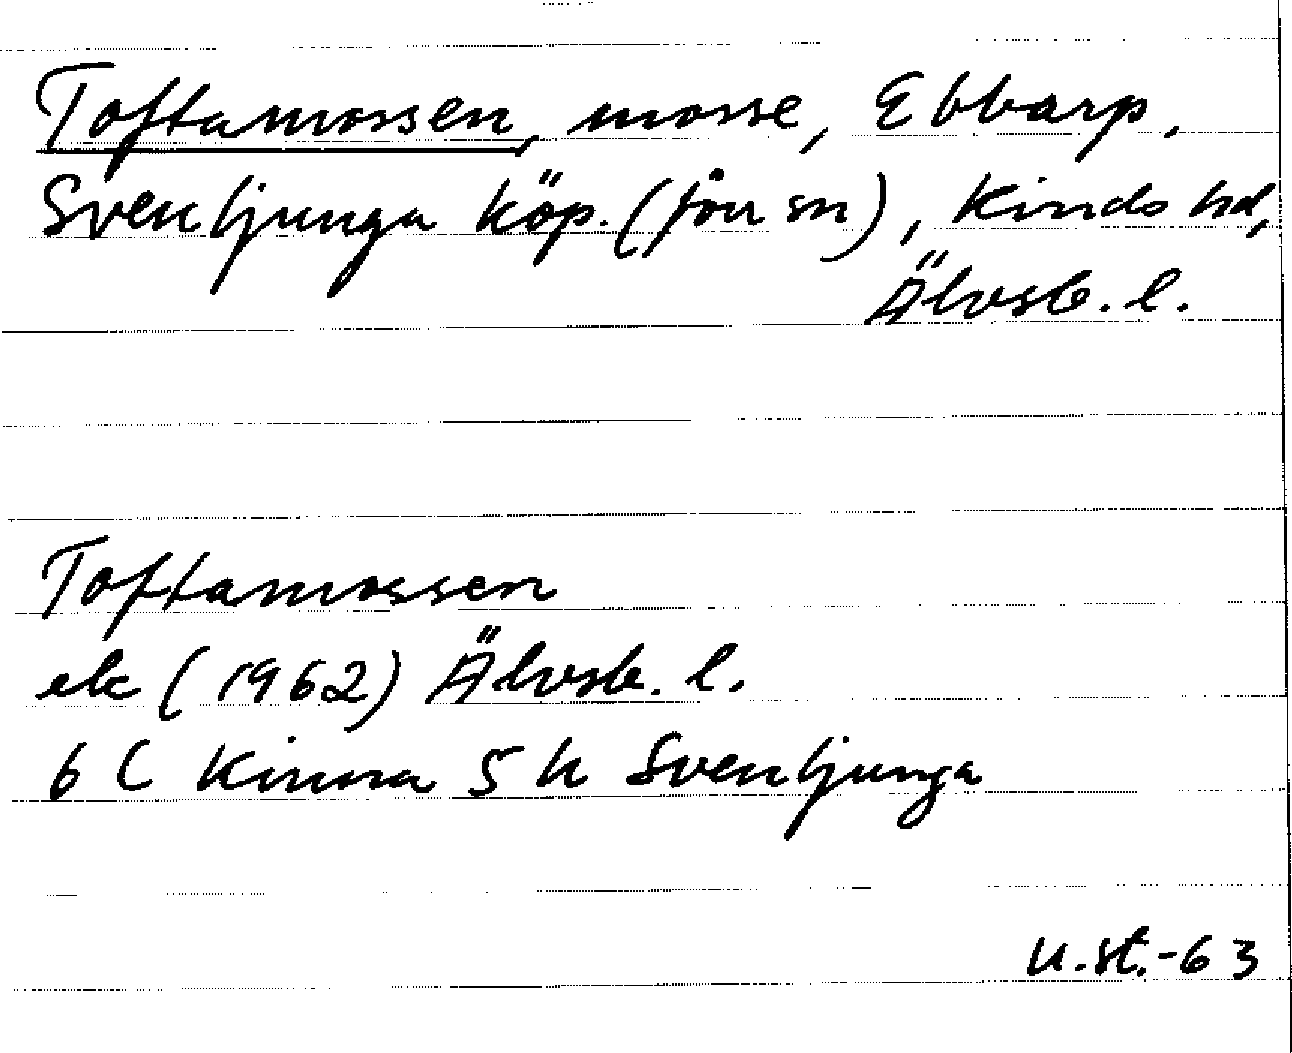 Toftamossen, mosse, Ebbarp,
Svenljunga köp. (förr sn), Kinds hd,
Älvsb. l.
Toftamossen
ek (1962) Älvsb. l.
6 C Kinna 5 h Svenljunga
U.St.-63